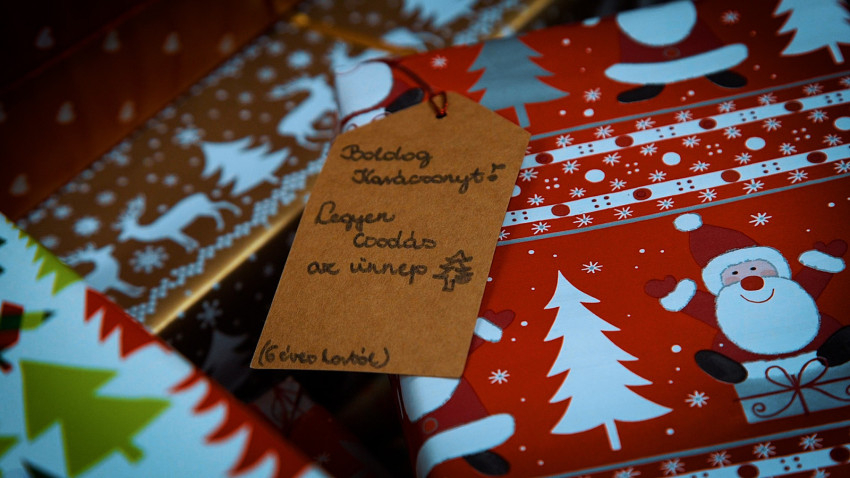 Boldog
Karácsonyt!
Legyen
Csodás
az ünnep
(6 éves kortól)